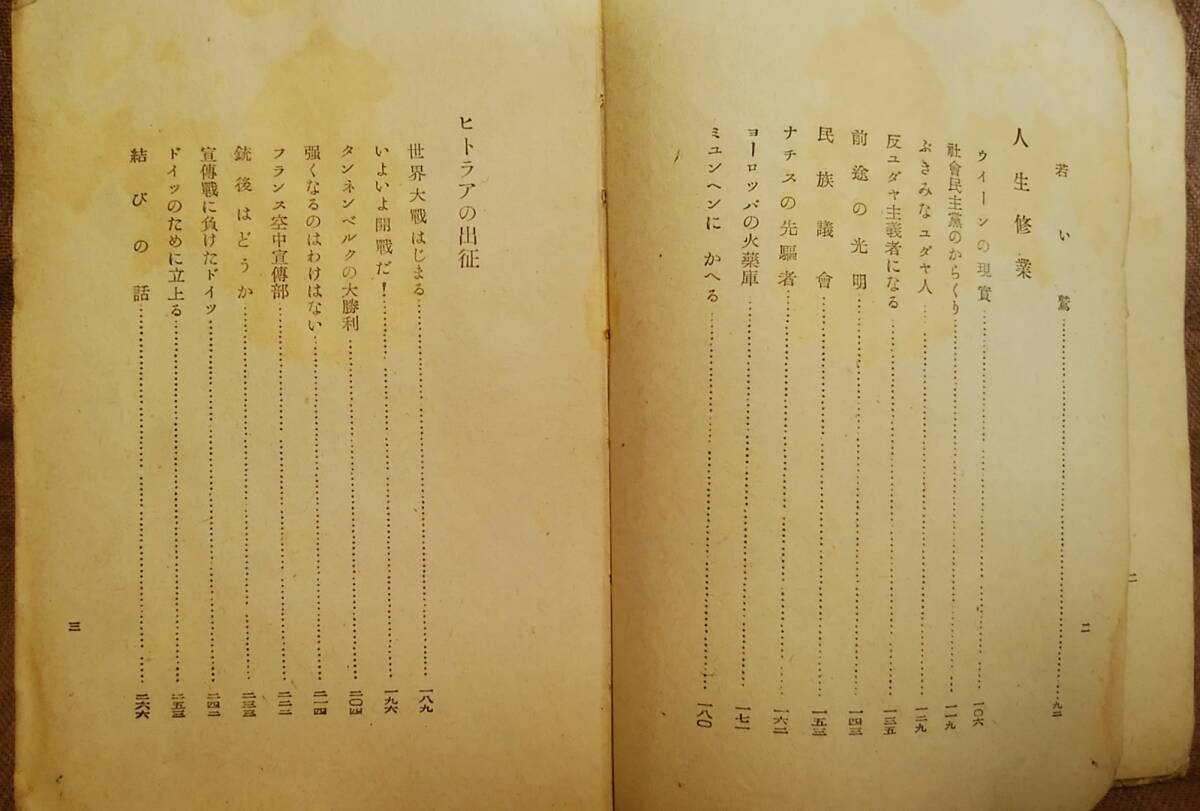 若い鷲……九二
人生修業
ウイーンの現實……一〇六
社會民主黨のからくり……一一九
ぶきみなユダヤ人……一二九
反ユダヤ主義者になる……一三五
前途の光明……一四三
民族議會……一五三
ナチスの先驅者……一六二
ヨーロッパの火藥庫……一七一
ミュンヘンに かへる……一八〇
二
二
ヒトラアの出征
世界大戰はじまる……一八九
いよいよ開戰だ！……一九六
タンネンベルクの大勝利……二〇四
强くなるのはわけはない……二一四
フランス空中宣傳部……二二二
銃後はどうか……二三三
宣傳戰に負けたドイツ……二四二
ドイツのために立上る……二五三
結びの話……二六六
三